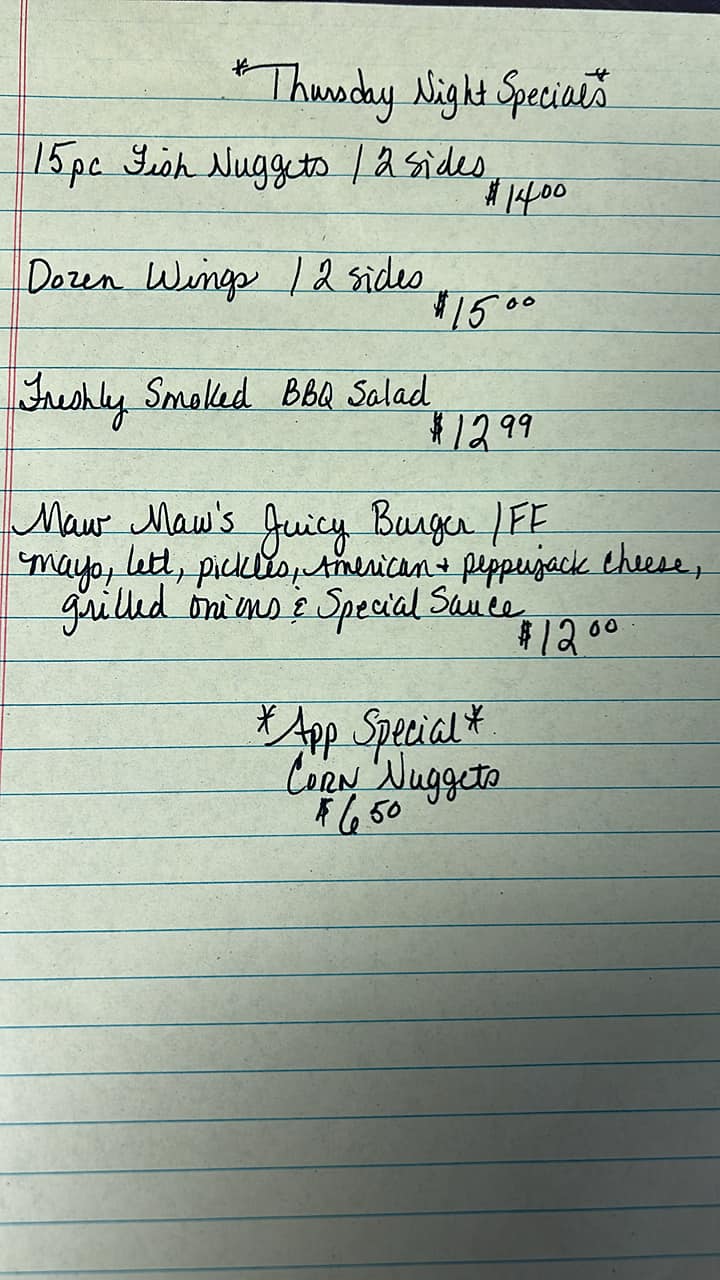 *Thursday Night Specials*
15pc Fish Nuggets / 2 sides
$14.00
Dozen Wings / 2 sides
$15.00
Freshly Smoked BBQ Salad
$12.99
Maw Maw's Juicy Burger / FF
mayo, lett, pickles, American + pepperjack cheese,
grilled onions & Special Sauce
$12.00
*App Special*
CORN Nuggets
$6.50